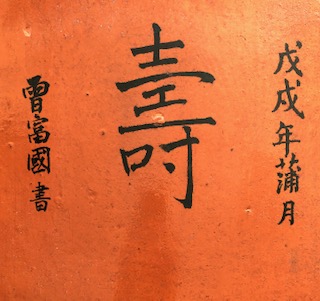 戊戌年蒲月
壽
曾富國書